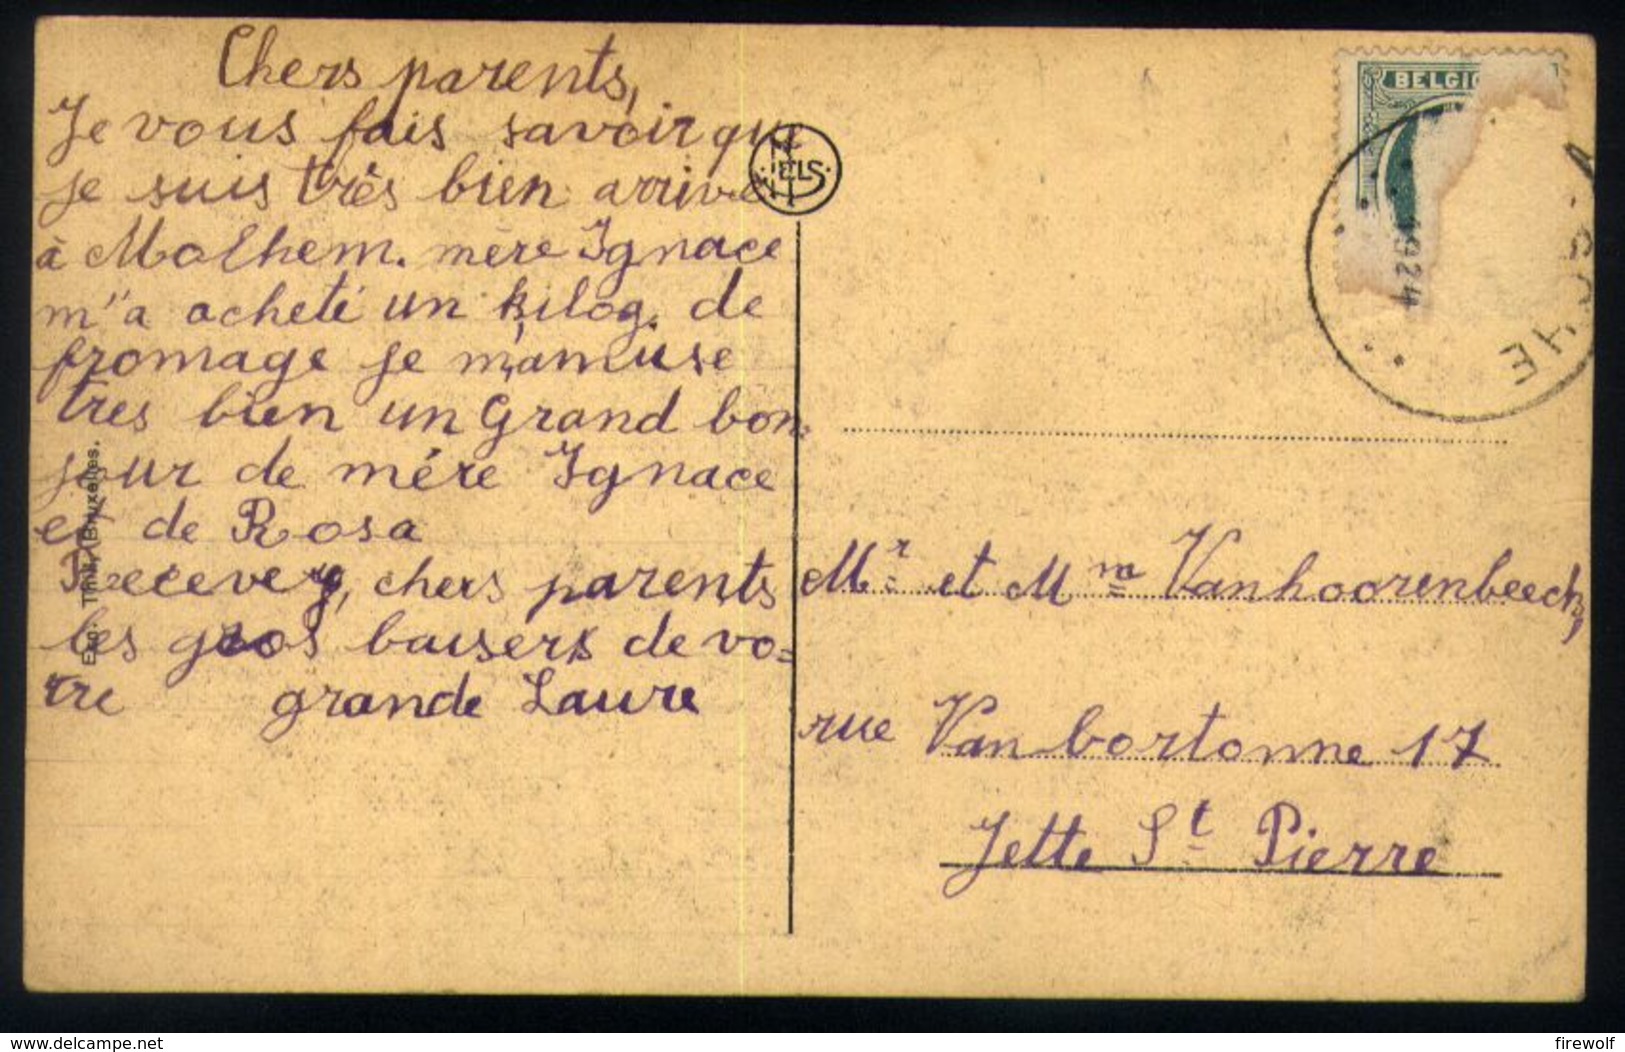 Chers parents,
Je vous fais savoir que
je suis très bien arrivé
à Molhem. mère Ignace
m'a acheté un kilog. de
fromage je m'amuse
tres bien un Grand bon-
jour de mére Ignace
et de Rosa
Recevez, chers parents
les gros baisers de vo=
tre grande Laure
Exp. Thill, Bruxelles.
NELS
BELGIQ
1924
CHE
Mr et Mme Vanhoorenbeeck,
rue Vanbortonne 17
Jette St Pierre
www.delcampe.net
firewolf